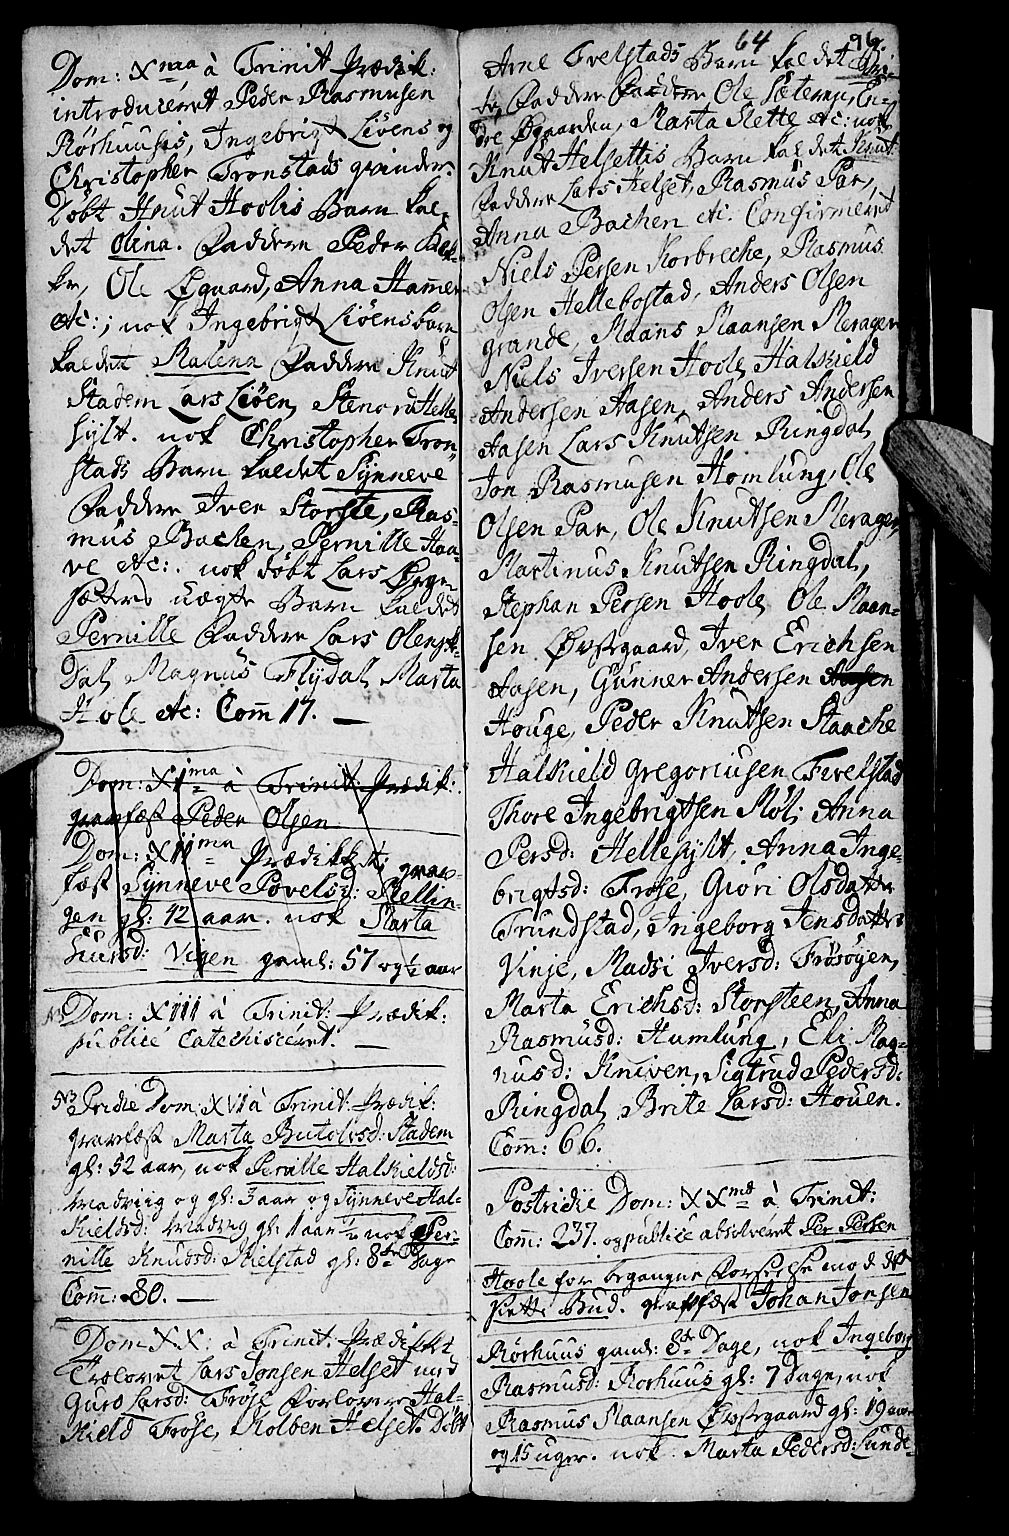 Dom: Xma à Trinit. Prædik:
introduceret Peder Rasmusen
Rørhuusis, Ingebrigt Liöens og
Christopher Tronstads qvinder.
Døbt Knut Hoolis Barn kal-
det Olina. Faddere Peder
Ole Øgaard, Anna Hamer
etc:, nok Ingebrigt Liöens barn
kaldet Malena Faddere Knut
Stadem Lars Liöen, Helle-
sylt. nok Christopher Tron-
stads Barn kaldet Synneve
Faddere Iver Storste, Ras-
mus Bachen, Pernille Haa-
ve etc:. nok døbt Lars
sætters uægte Barn kaldet
Pernille Faddere Lars
Dal, Magnus Flydal, Marta
Hole etc: Com̄ 17. —
Dom: XIma à Trinit. Prædik:
gravfæst Peder Olsen
Dom: XIIma Prædikket: grav-
fæst Synneve Povelsd: Mellin-
gen gl: 42 aar. nok Marta
Vigen gaml: 57 og ½ aar
Dom: XIII à Trinit: Prædik:
publicé Catechiseret. —
Pridie Dom: XVI à Trinit: Prædik:
gravfæst Marta Butolvsd: Stadem
gl: 52 aar, nok Pernille Halkieldsd:
Madviig og gl: 3 aar og Synneve Hal-
kieldsd: Madvig gl: 1 aar nok Per-
nille Knudsd: Kielstad gl: 8te Dage
Com̄: 80. —
Dom: XX: à Trinit. Prædikket
Trolovet Lars Jonsen Helset med
Guro Larsd: Frøse Forlovere Hal-
kield Frøse, Kolben Helset. Døbt
64 96.
Arne Tvelstads Barn kaldet
Faddere Ole Sæteren, En-
dre Øgaarden, Marta Slette etc: nok
Knut Helsettis Barn kaldet Knut
Faddere Lars Helset, Rasmus Par,
Anna Bachen etc. Confirmeret
Niels Persen Korbreche, Rasmus
Olsen Hellebostad, Anders Olsen
grande, Maans Maansen Merager
Niels Iversen Hoole, Halkield
Andersen Aasen, Anders Andersen
Aasen Lars Knutsen Ringdal
Jon Rasmusen Homlung, Ole
Olsen Par, Ole Knutsen Merager,
Martinus Knutsen Ringdal,
Stephan Persen Hoole, Ole Maan-
sen Øvstgaard, Iver Erichsen
Aasen, Gunner Andersen Aasen
Houge, Peder Knutsen Staache
Halkield Gregoriusen Tvelstad
Thore Ingebrigtsen Møl, Anna
Persd: Hellesylt, Anna Inge-
brigtsd: Frøse, Giöri Olsdatter
Trundstad, Ingeborg Jensdatter
Vinje, Madsi Iversd: Frøsøyen,
Marta Erichsd: Storsteen, Anna
Rasmusd: Humlung, Eli Mag-
nusd: Kniven, Sigtrud Pedersd:
Ringdal, Brite Larsd: Houen.
Com̄: 66.
Postridie Dom: XXmd à Trinit:
Com̄: 237. og publicé absolveret Per Persen
Hoole for begangne Forseelse mod det
siette Bud. gravfæst Johan Jonsen
Rørhuus gaml: 8te Dage, nok Ingeborg
Rasmusd: Rorhuus gl: 7 Dage, nok
Rasmus Maansen Øvstgaard gl: 19 aar
og 15 uger. nok: Marta Pedersd: Lunde-